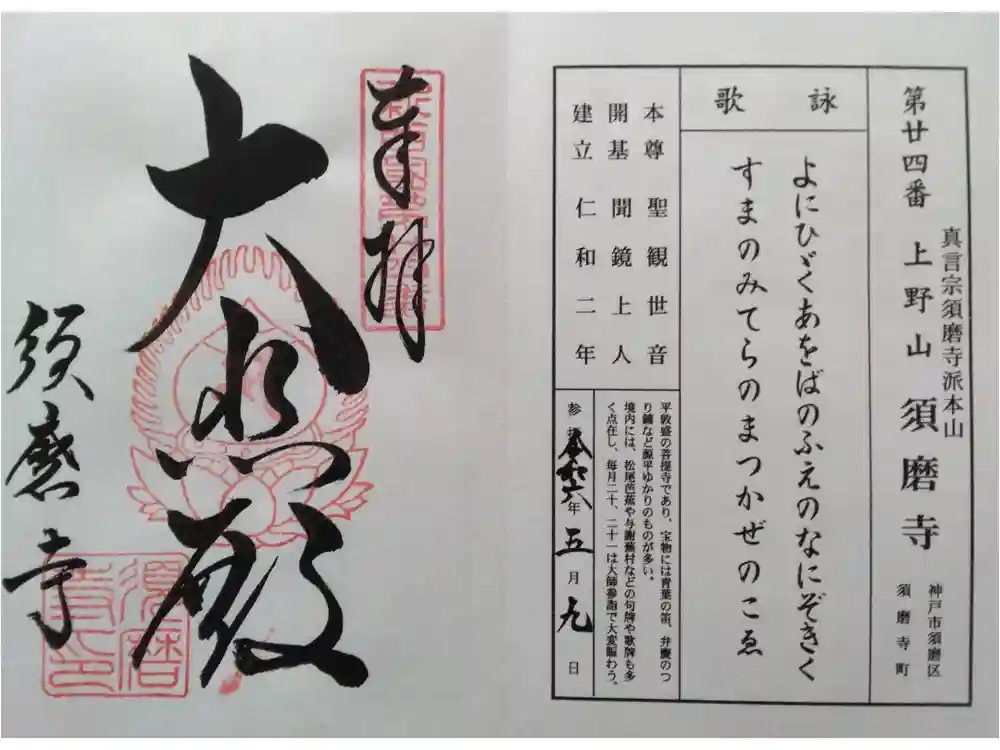 真言宗須磨寺派本山
第廿四番 上野山 須磨寺
神戸市須磨区
須磨寺町
詠歌
よにひゞくあをばのふえのなにぞきく
すまのみてらのまつかぜのこゑ
本尊 聖観世音
開基 聞鏡上人
建立 仁和二年
平敦盛の菩提寺であり、宝物には青葉の笛、弁慶のつ
り鐘など源平ゆかりのものが多い。
境内には、松尾芭蕉や与謝蕪村などの句碑や歌碑も多
く点在し、毎月二十、二十一は大師参詣で大変賑わう。
参拝 令和六年五月九日
奉拝
大悲殿
須磨寺